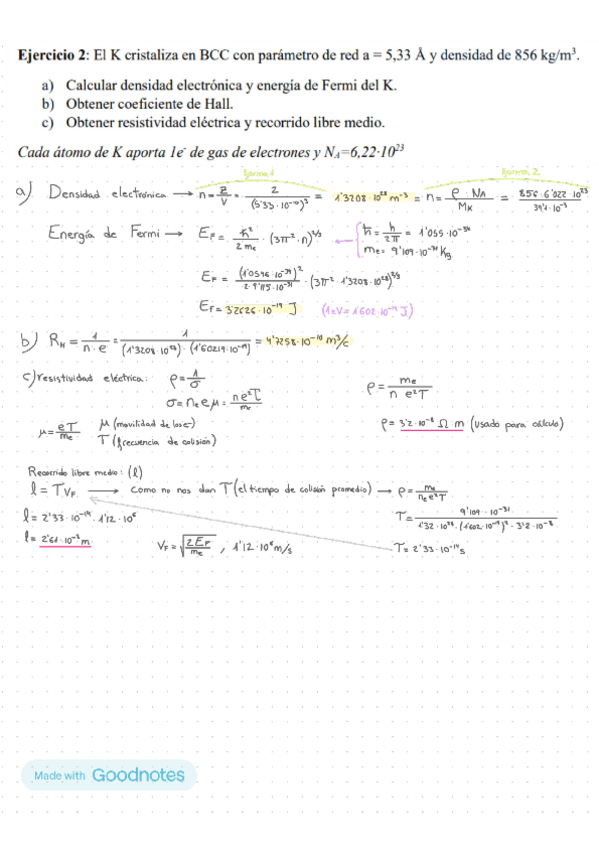 Ejercicio 2: El K cristaliza en BCC con parámetro de red a = 5,33 Å y densidad de 856 kg/m³.
a) Calcular densidad electrónica y energía de Fermi del K.
b) Obtener coeficiente de Hall.
c) Obtener resistividad eléctrica y recorrido libre medio.
Cada átomo de K aporta 1e⁻ de gas de electrones y N_A=6,22·10²³
forma 1 forma 2
a) Densidad electrónica → n = 2/V = 2/(5'33·10⁻¹⁰)³ = 1'3208·10²⁸ m⁻³ = n = ρ·NA/MK = 856·6'022·10²³/39'1·10⁻³
Energía de Fermi → E_F = ħ²/2me · (3π²·n)^2/3 ħ = h/2π = 1'055·10⁻³⁴
me = 9'109·10⁻³¹ Kg
E_F = (1'0546·10⁻³⁴)²/2·9'115·10⁻³¹ · (3π²·1'3208·10²⁸)^2/3
E_F = 3'2626·10⁻¹⁹ J (1eV = 1'602·10⁻¹⁹ J)
b) R_H = 1/n·e = 1/(1'3208·10²⁸)·(1'60219·10⁻¹⁹) = 4'7258·10⁻¹⁰ m³/C
c) resistividad eléctrica: ρ = 1/σ ρ = me/n e²T
σ = n e μ = n e²T/me
μ = eT/me μ (movilidad de los e⁻) ρ = 3'2·10⁻⁸ Ω·m (usado para cálculo)
T (frecuencia de colisión)
Recorrido libre medio: (l)
l = T V_F → como no nos dan T (el tiempo de colisión promedio) → ρ = me/n e²T
l = 2'33·10⁻¹⁴·1'12·10⁶ T = 9'109·10⁻³¹/1'32·10²⁸·(1'602·10⁻¹⁹)²·3'2·10⁻⁸
l = 2'61·10⁻⁸ m V_F = √(2E_F/me), 1'12·10⁶ m/s T = 2'33·10⁻¹⁴ s
Made with Goodnotes